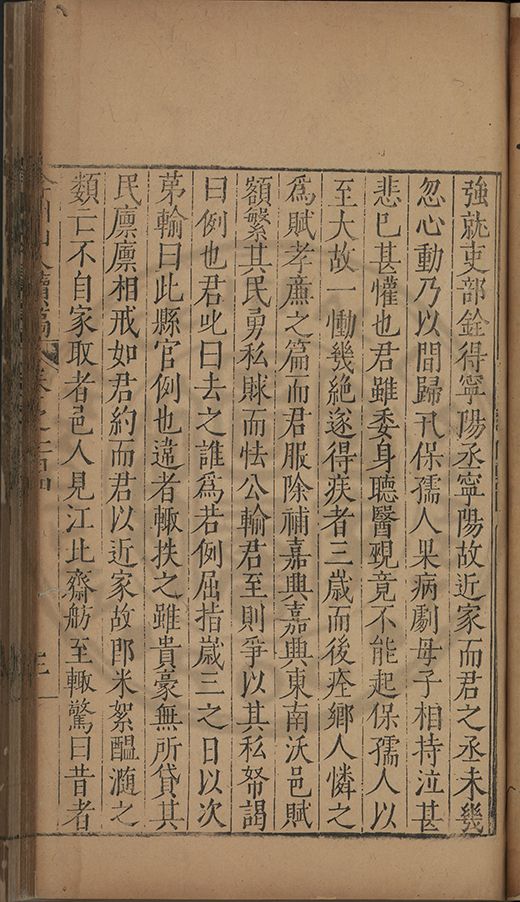 強就吏部銓得寧陽丞寧陽故近家而君之丞未幾
忽心動乃以間歸卂保孺人果病劇母子相持泣甚
悲已甚懽也君雖委身聽醫覡竟不能起保孺人以
至大故一慟幾絶遂得疾者三歲而後痊鄉人憐之
爲賦孝廉之篇而君服除補嘉興嘉興東南沃邑賦
額繁其民勇私賕而怯公輸君至則爭以其私帑謁
曰例也君叱曰去之誰爲若例屈指歲三之日以次
苐輸曰此縣官例也違者輙抶之雖貴豪無所貸其
民廪廪相戒如君約而君以近家故卽米絮醞瀡之
類亡不自家取者邑人見江北齋舫至輙驚曰昔者
山人續稿 卷之